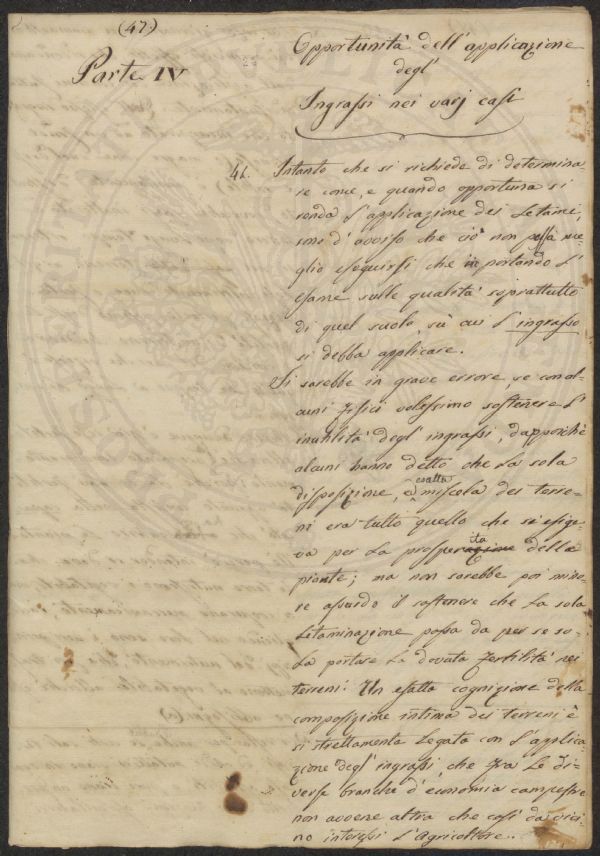 (47)
Parte IV
Opportunità dell'applicazione
degl'
Ingrassi nei varj casi
41. Intanto che si richiede di determina-
re come, e quando opportuna si
renda l'applicazione dei Letami,
sono d'avviso che ciò non possa me-
glio eseguirsi che portando l'
esame sulle qualità soprattutto
di quel suolo, su cui l'ingrasso
si debba applicare.
Si sarebbe in grave errore, se con al-
cuni Fisici volessimo sostenere l'
inutilità degl'ingrassi, dapporichè
alcuni hanno detto che la sola
disposizione, e esatta miscela dei terre-
ni era tutto quello che si esige-
va per la prosperità della
piante; ma non sarebbe poi mino-
re assurdo il sostenere che la sola
Letaminazione possa da per se so-
la portare la dovuta fertilità nei
terreni. Un esatta cognizione della
composizione intima dei terreni è
si strettamente legata con l'applica-
zione degl'ingrassi, che fra le di-
verse branche d'economia campestre
non avvene altra che così da vici-
no interessi l'Agricoltore.